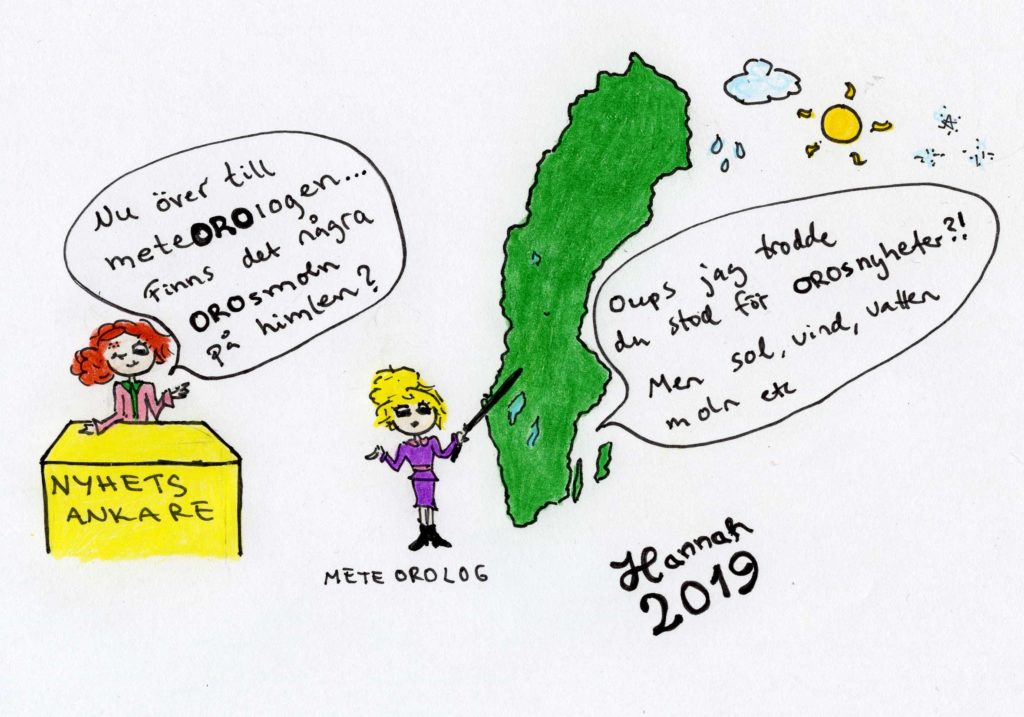 Nu över till
meteOROlogen...
Finns det några
OROsmoln
på himlen?
NYHETS
ANKARE
METEOROLOG
Oups jag trodde
du stod för OROSnyheter?!
Men sol, vind, vatten
moln etc
Hannah
2019